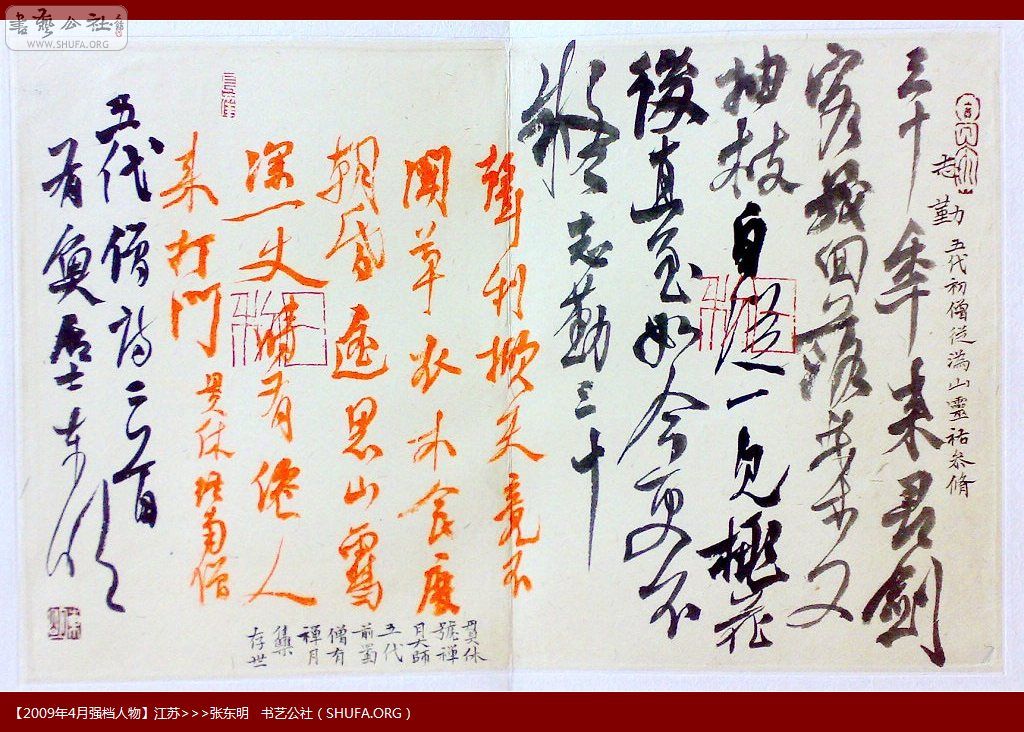 書藝公社
WWW.SHUFA.ORG
志勤 五代初僧從溈山靈祐參脩
三十季来尋剑
客幾回落葉又
抽枝自從一見桃花
後直至如今更不
疑 志勤三十
聲利掀天竟不
聞草衣木食度
朝昏遥思山雪
深一丈時有僊人
来打門 貫休終南僧
貫休
號禪
月大師
五代
前蜀
僧有
禪月
集
存世
五代僧詩二首
有奐居士東明
【2009年4月强档人物】江苏>>>张东明 书艺公社（SHUFA.ORG）